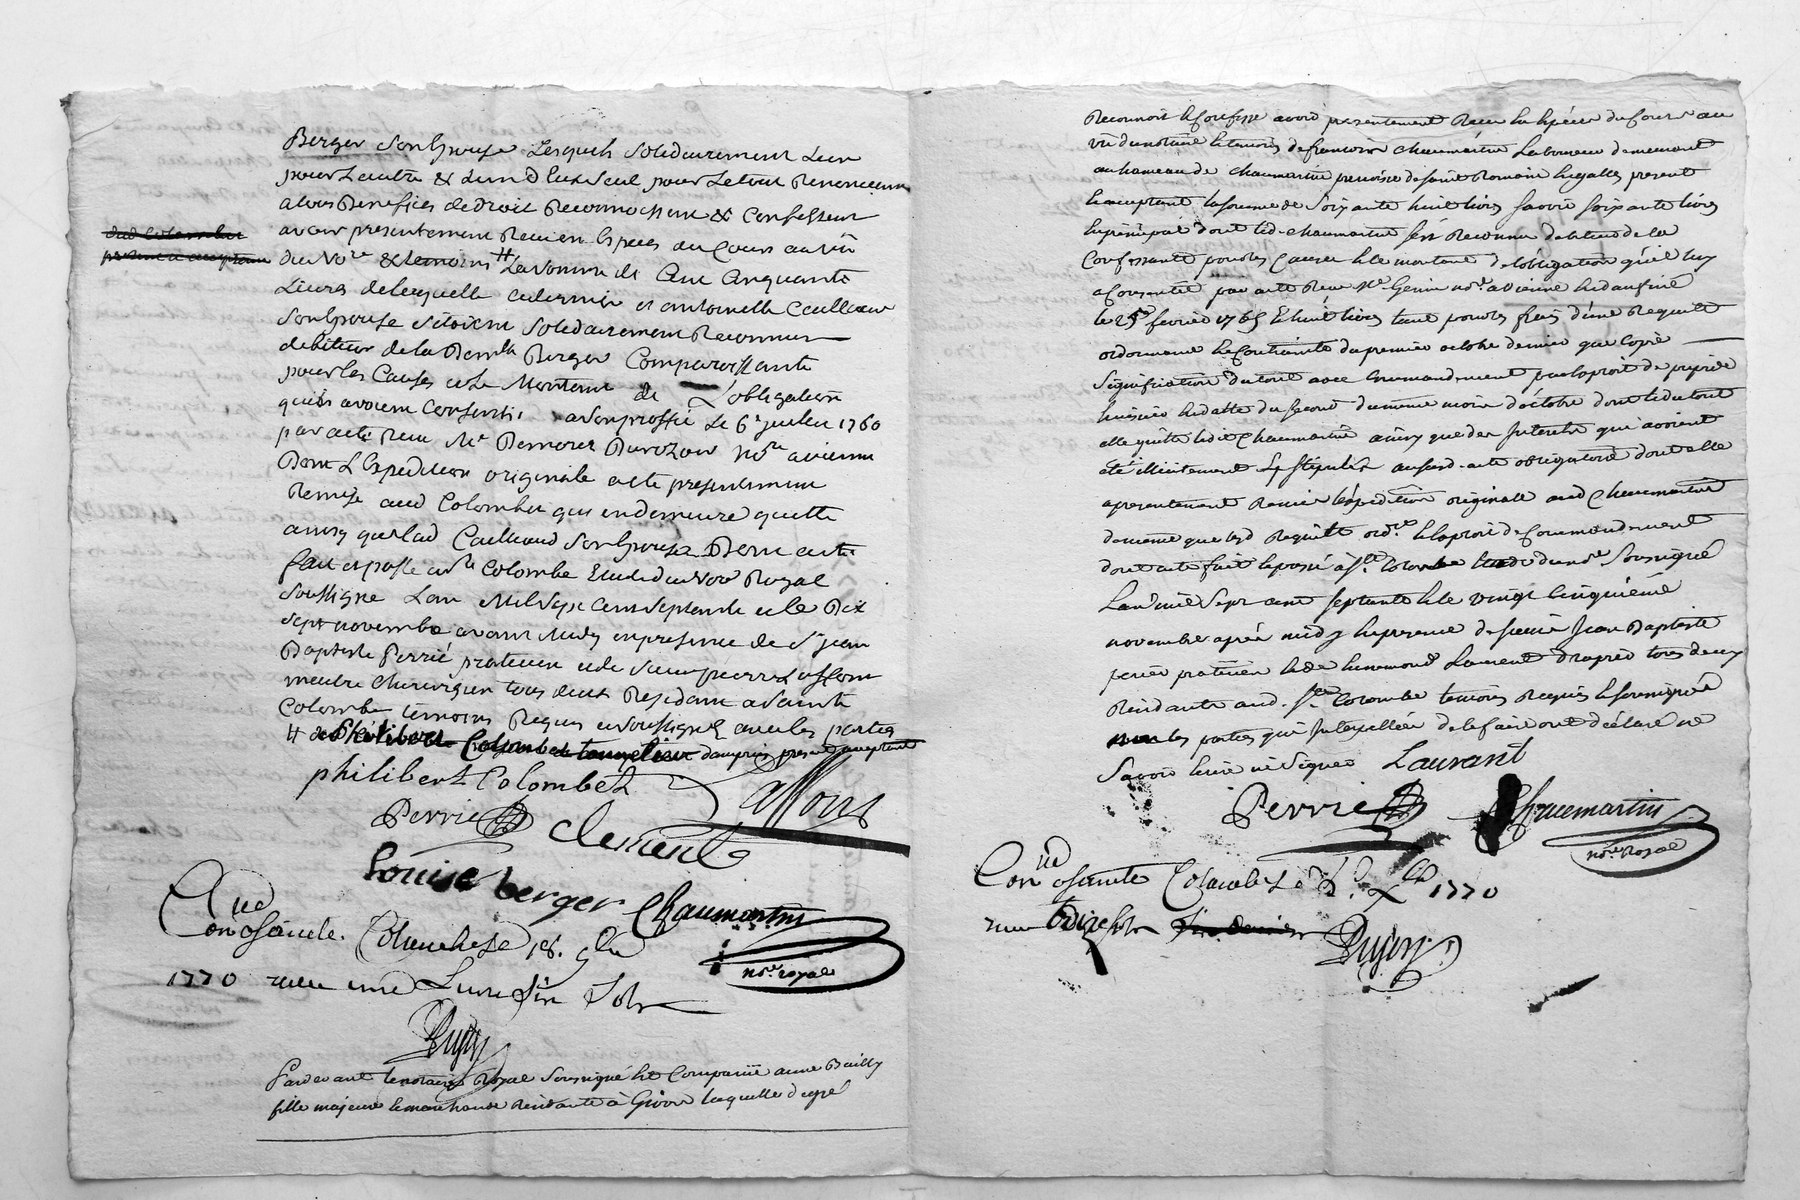 Berger Son Epouse Lesquels Solidairement Lun
pour Lautre & Lun d'Eux Seul pour Le tout Renonceant
a tous Benefices de droit Reconnoissent & Confessent
avoir presentement Recu en Especes au Cours au vû
dud Colombet
present et acceptant
du No.re & temoins # La Somme de Cent Cinquante
Livres de laquelle ce dernier et antoinette Cailleau
Son Epouse S'etoient Solidairement Reconnus
debiteurs de la Dem.lle Berger Comparoissante
pour les Causes et Le Montant de L'obligation
quils avoient Consenti a Son proffit Le 6e juillet 1760
par acte Recu Me Durozou No.re a vienne
Dont L'Expedition originale a ete presentement
Remise aud Colombet qui en demeure quitte
ainsy que lad Son Epouse Dont acte
fait et passé a Ste Colombe Etude du Nore Royal
Soussigne Lan Mil Sept Cent Septante et le Dix
Sept novembre avant Midy en presence de Sr jean
Baptiste Perrié praticien et de Sieur pierre Laffont
maitre Chirurgien tous deux Residant a Sainte
Colombe temoins Requis et Soussignés avec les parties
# de Philibert Colombet tonnelier dampuis present acceptant
philibert Colombet Laffont
Perrie Clement
Louise berger Chaumartin
nore royal
Con.lé a Sainte Colombe Le 18. 9bre
1770 recu une Livre Six Sols
Pardevant le notaire Royal Soussigné est Comparüe anne Bailly
fille majeure et marchande Residante à Givors laquelle de gré
Reconnoit & Confesse avoir presentement Recu en Especes du Cours au
vû du notaire & temoins de françois Chaumartin Laboureur demeurant
au hameau de Chaumartin paroisse de Saint Romain en galles present
& acceptant la Somme de Soixante huit livres Savoir Soixante livres
en principal dont led. Chaumartin s'est Reconnu debiteur de la
Confessante pour les Causes & le montant de l'obligation qu'il luy
a Consentie par acte Recu Me Genin nore a vienne en dauphiné
le 25e fevrier 1765 & huit livres tant pour les frais d'une Requette
ordonnance & Contrainte du premier octobre dernier que Copie
Signification du tout avec Commandement par Exploit de
huissier en datte du Second du meme mois d'octobre dont & du tout
elle quitte led Chaumartin ainsy que des Interets qui avoient
été Stipulés aud. acte obligatoire dont elle
a presentement Remis l'expedition originale aud Chaumartin
de meme que lesd Requette ord.ce & Exploit de Commandement
dont acte fait & passé à Ste Colombe Etude du nore Soussigné
L'an mil Sept cent Septante & le vingt Cinquieme
novembre après midy en presence de Sieur Jean Baptiste
perrié praticien & de Laurent tous deux
Residants aud. Ste Colombe temoins Requis & Soussignés
les parties qui Interpellées de le faire ont déclaré ne
Savoir Ecrire ni Signer Laurant
Perrie Chaumartin
nore royal
Con.lé a Sainte Colombe Le Xbre 1770
recu treize Sols